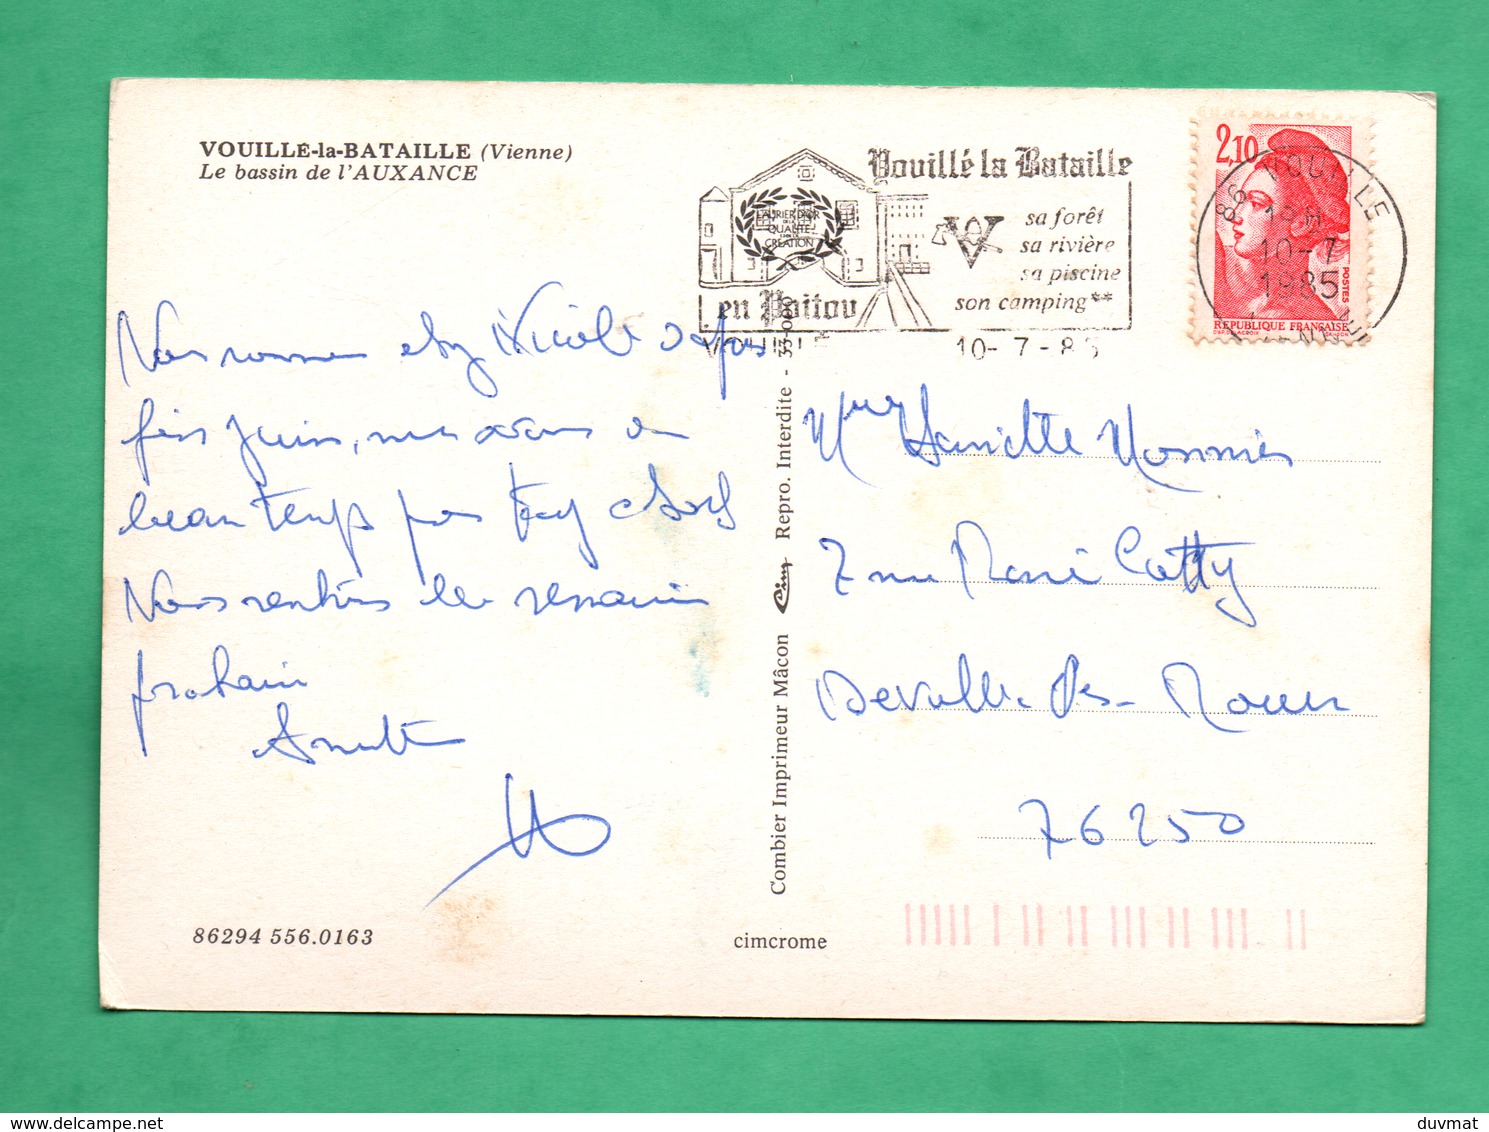 VOUILLÉ-la-BATAILLE (Vienne)
Le bassin de l'AUXANCE
Nous sommes chez Nicole depuis
fin juin, nous avons du
beau temps pas trop chaud
Nous rentrons la semaine
prochaine
Annette
86294 556.0163
Combier Imprimeur Mâcon Cim Repro. Interdite - 33-000
cimcrome
Vouillé la Bataille
LAURIER D'OR
DE LA
QUALITÉ
CRÉATION
sa forêt
sa rivière
sa piscine
son camping**
en Poitou
10-7-85
2,10
POSTES
RÉPUBLIQUE FRANÇAISE
86 VOUILLE
10-7
1985
VIENNE
Mme Monnier
7 rue René Catty
Deville les Rouen
76250
duvmat